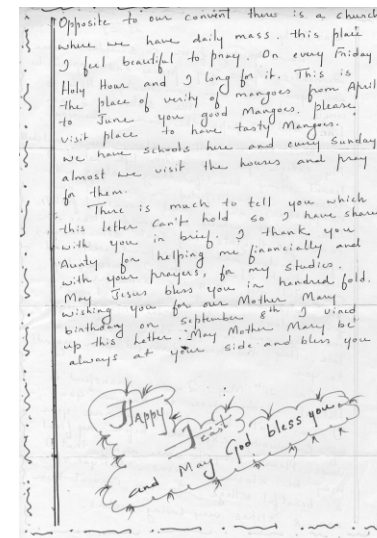 Opposite to our convent there is a church
where we have daily mass. this place
I feel beautiful to pray. On every Friday
Holy Hour and I long for it. This is
the place of verity of mangoes from April
to June you good Mangoes. please
visit place to have tasty Mangoes.
we have schools here and every Sunday
almost we visit the houses and pray
for them.
There is much to tell you which
this letter can't hold so I have share
with you in brief. I thank you
Aunty for helping me financially and
with your prayers, for my studies.
May Jesus bless you in hundred fold.
wishing you for our Mother Mary
birthday on september 8th I vined
up this letter. May Mother Mary be
always at your side and bless you
Happy
Feast
and May God bless you